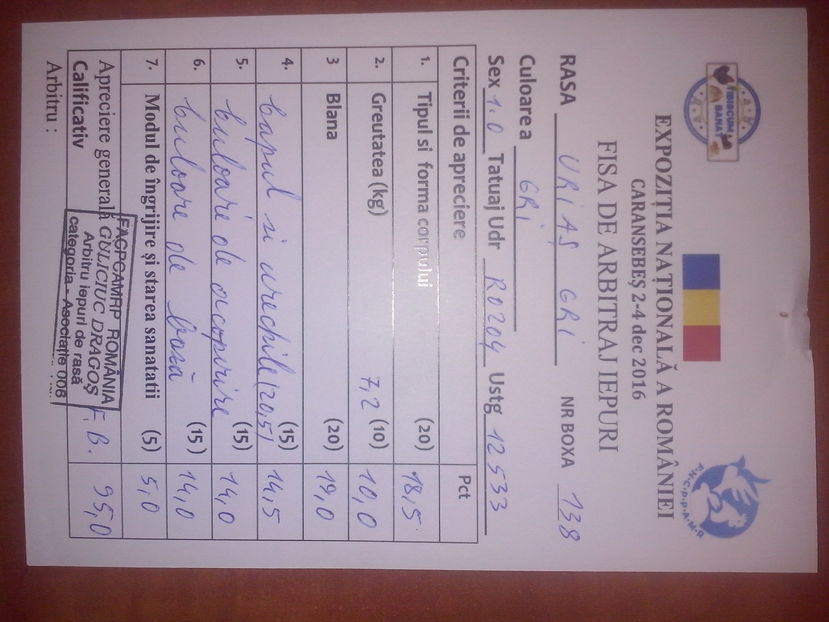 TIBISCUM
BANAT
A.N.C.P.P.A.M.R
EXPOZIȚIA NAȚIONALĂ A ROMÂNIEI
CARANSEBEȘ 2-4 dec 2016
FISA DE ARBITRAJ IEPURI
RASA URIAȘ GRI NR BOXA 138
Culoare a GRI
Sex 1.0 Tatuaj Udr RO204 Ustg 12533
Criterii de apreciere Pct
1. Tipul si forma corpului (20) 18,5
2. Greutatea (kg) 7,2 (10) 10,0
3 Blana (20) 19,0
4. Capul si urechile (20,5) (15) 14,5
5. Culoare de acoperire (15) 14,0
6. Culoare de bază (15) 14,0
7. Modul de îngrijire și starea sanatatii (5) 5,0
Apreciere generală F.B. 95,0
Calificativ
Arbitru :
FACPCAMRP ROMÂNIA
GULICIUC DRAGOȘ
Arbitru iepuri de rasă
categoria - Asociație 006